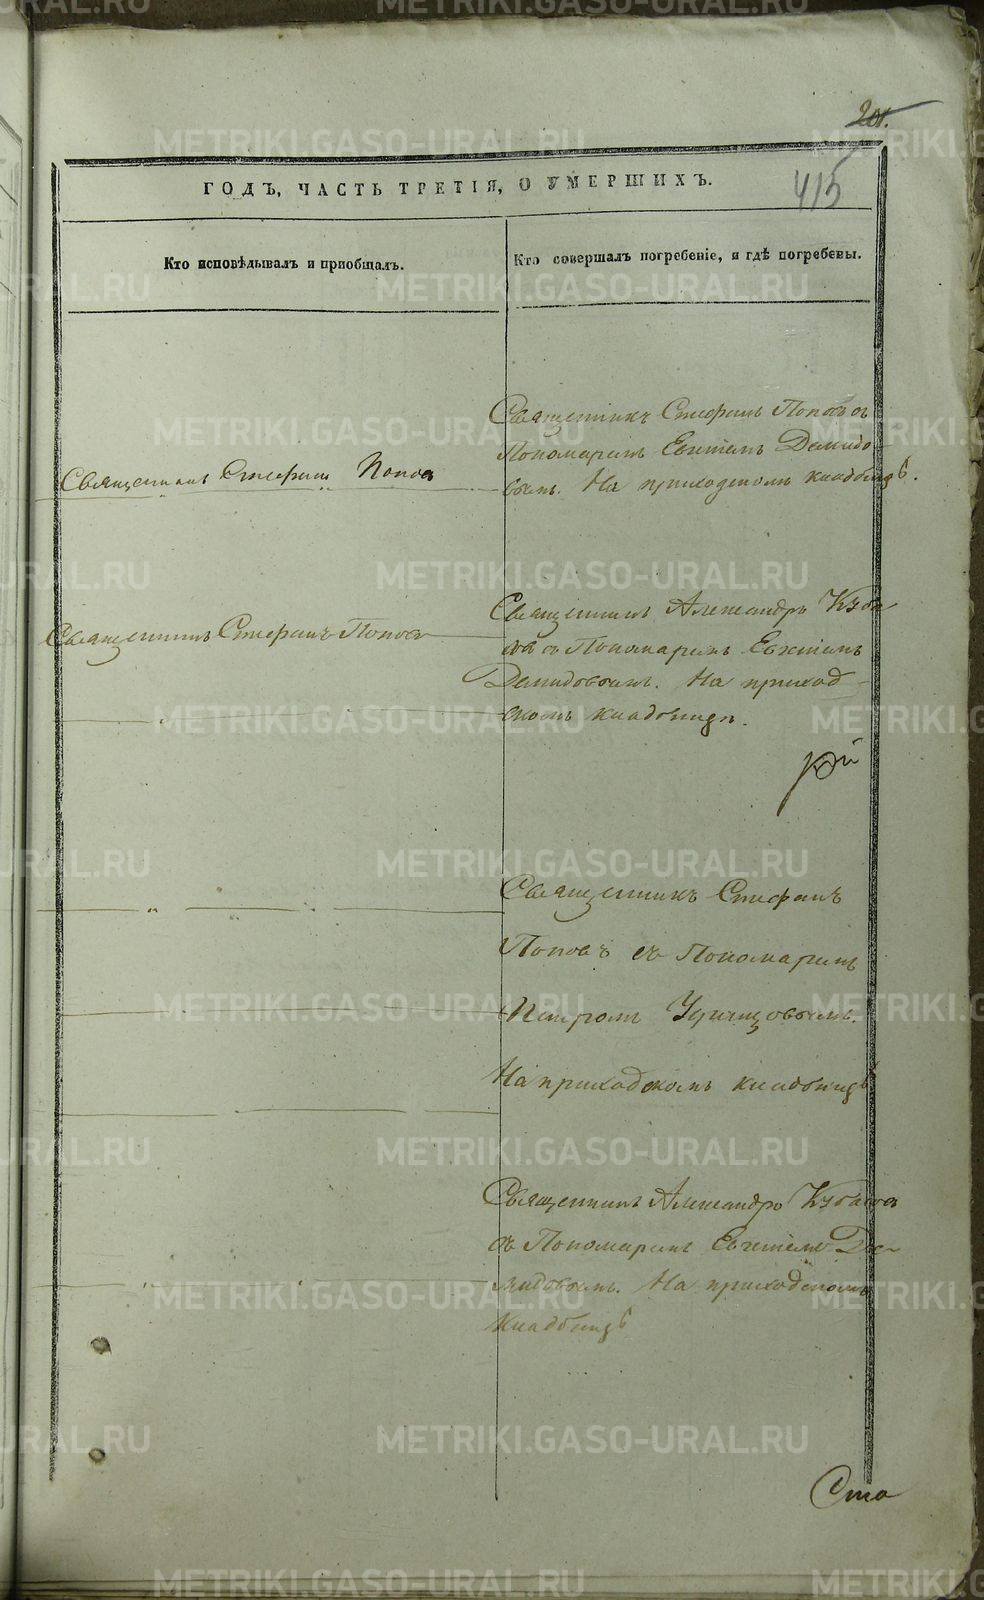 201.
415
ГОДЪ, ЧАСТЬ ТРЕТІЯ, О УМЕРШИХЪ.
Кто исповѣдывалъ и приобщалъ.
Кто совершалъ погребеніе, и гдѣ погребены.
Священникъ Стефанъ Поповъ съ
Пономаремъ Евгеніемъ Демидо-
вымъ. На приходскомъ кладбищѣ.
Священникъ Стефанъ Поповъ
Священникъ Александръ
съ Пономаремъ Евгеніемъ
Демидовымъ. На приход-
скомъ кладбищѣ.
Священникъ Стефанъ Поповъ
Священникъ Стефанъ
Поповъ съ Пономаремъ
Петромъ
На приходскомъ кладбищѣ
Священникъ Александръ
съ Пономаремъ Евгеніемъ Де-
мидовымъ. На приходскомъ
кладбищѣ
Сто
METRIKI.GASO-URAL.RU